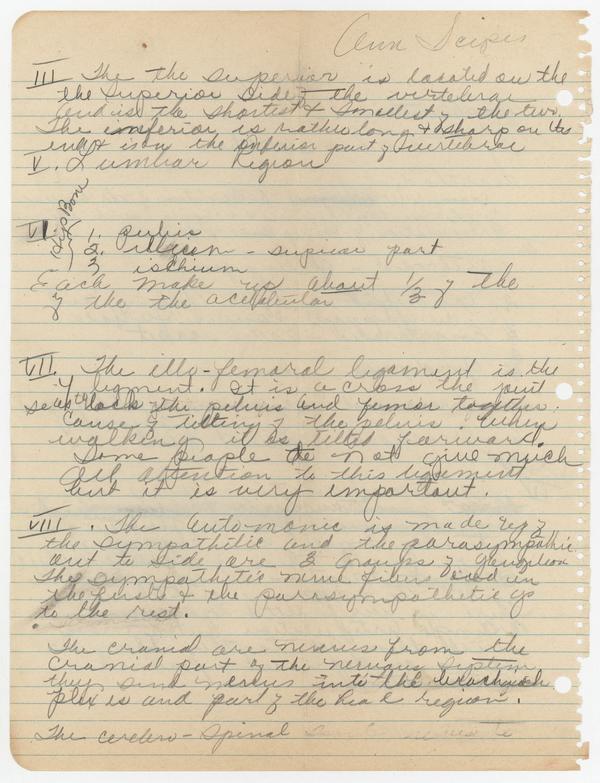 Ann
III The the superior is located on the
the superior side of the vertebrae
and is the shortest & smallest of the two.
The inferior is rather long & sharp on its
end & is on the inferior part of vertebrae
V. Lumbar Region
VI. Hip Bone
1. pubis
2. illium - supior part
3 ischium
Each make up about 1/3 of the
of the the
VII. The illo-femoral ligament is the
Y ligment. It is a cross the joint
so as to lock the pelvis and femur together.
Cause of tilting of the pelvis. When
walking it is tilted forward.
Some people do not give much
attention to this ligament
but it is very important.
VIII. The Auto-monic is made up of
the sympathitic and the parasympathic
out to side are 3 groups of
The sympathetic nerve fibers end in
the first & the parasympathetic go
to the rest.
The cranial are nerves from the
cranial part of the nervous system
they send nerves into the
plexis and part of the head region.
The cerebro-spinal